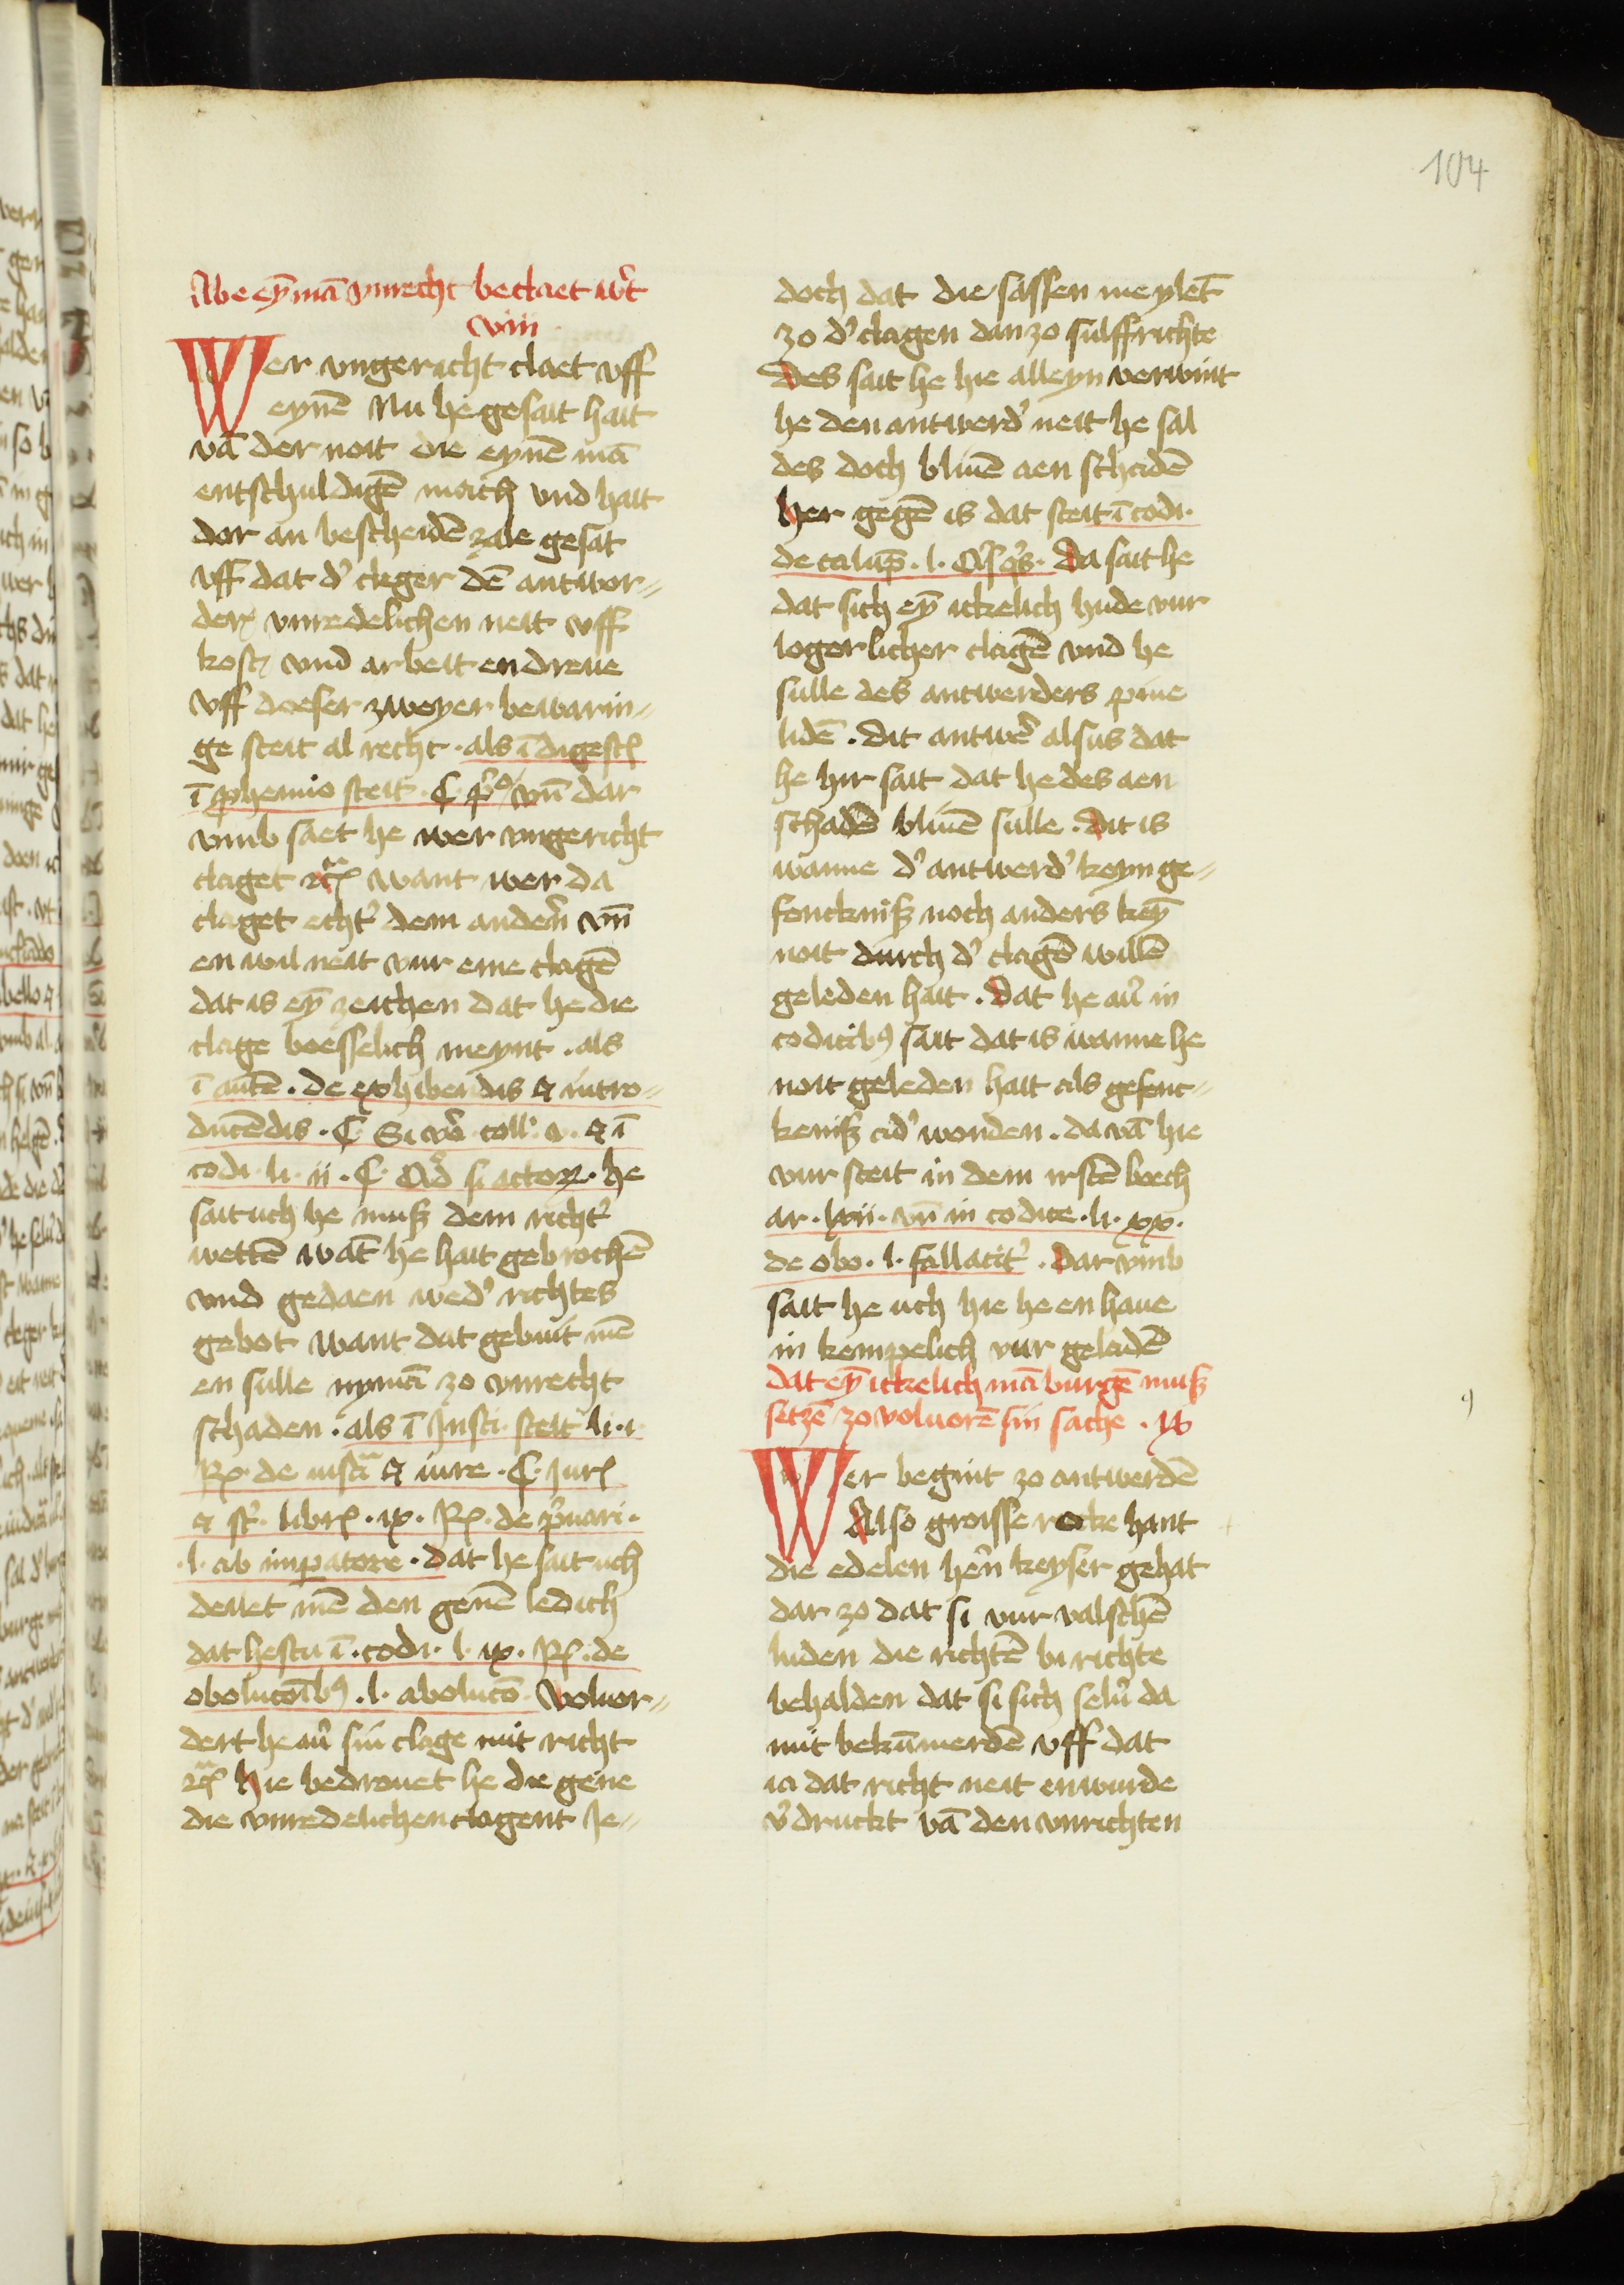 104
Abe ey̅ ma̅ vnrecht beclaet w't
viii
Wer vngericht claet vff
eyne̅ Nu he gesait hait
va̅ der noit die eyne̅ ma̅
entschuldige̅ mach vnd hait
dar an bescheide̅ zale gesat
vff dat d' cleger de̅ antwor⸗
der vnredelichen neit vff
kost vnd arbeit en dreue
vff deser zweyer bewarin⸗
ge steit al recht . als i̅ digest
i̅ phemio steit . C . pº vn̅ dar
vmb saet he wer vngericht
claget etc want wer da
claget echt' dem andern̅ vn̅
en wil neit vur eme clage̅
dat is ey̅ zeichen dat he die
clage boesselich meynt . als
i̅ aute̅ . de exhibendis et intro⸗
duce̅dis . C Si vo' coll' . v . et i̅
codi . li . ii . C . Qd si actor . he
sait uch he musz dem richt'
wette̅ wat̅ he hait gebroche̅
vnd gedaen wed' richtes
gebot want dat gebuit me̅
en sulle nyma̅ zo vnrecht
schaden . als i̅ Insti . steit li . i .
R . de iusti̅a et iure . C . Jur
et st' . libr . ix . R . de p'uari .
. l . ab impatore . dat he sait uch
deilet me̅ den gene̅ ledich
dat hestu i̅ . codi . l . ix . R . de
abolucoi̅b9 . l . aboluco̅ . Voluor⸗
dert he au' sin clage mit richt
etc hie bedrouet he die gene
die vnredelichen clagent Je⸗
doch dat die sassen me ylet̅
zo d' clagen dan zo sulffrichte
des sait he hie alleyn verwint
he den antwerd' neit he sal
des doch bliue̅ aen schade̅
her gege̅ is dat steit i̅ codi .
de calup̅ . l . . da sait he
dat sich ey̅ ickelich hude vur
logerlicher clage̅ vnd he
sulle des antwerders pine
lide̅ . dit antwer' alsus dat
he hir sait dat he des aen
schade̅ bliue̅ sulle . dit is
wanne d' antwerd' keyn ge⸗
fencknisz noch anders key̅
noit durch d' clage̅ wille̅
geleden hait . dat he au' in
codicib9 sait dat is wanne he
noit geleden hait als gefenc⸗
kenisz ad' wonden . da va̅ hie
vur steit in dem irste̅ boech
ar . lxii . vn̅ in codice . li . xx .
de obo . l . fallacit' . dar vmb
sait he uch hie he en haue
in kempelich vur gelade̅
dat ey̅ ickelich ma̅ burge̅ musz
setze̅ zo voluore̅ sin sache . ix
Wer begint zo antwerde̅
Also groisse roche hant
die edelen her̅n keyser gehat
dar zo dat si vur valsche̅
luden die richte̅ bi richte
behalden dat si sich selu' da
mit beku̅merde̅ vff dat
ia dat richt neit en wurde
v'druckt va̅ den vnrichten